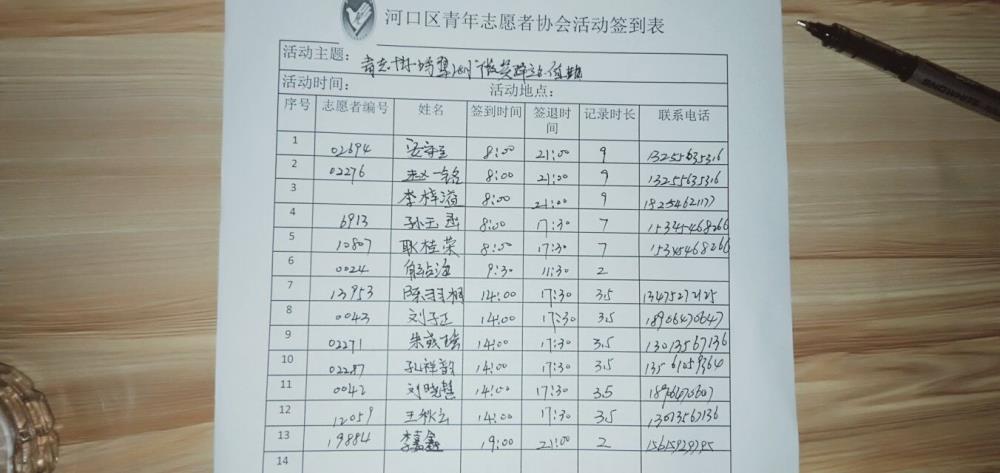 河口区青年志愿者协会活动签到表
活动主题:
活动时间: 活动地点:
序号 志愿者编号 姓名 签到时间 签退时间 记录时长 联系电话
1 02694 8:00 21:00 9 13255635316
2 02276 赵一铭 8:00 21:00 9 13255635316
3 李梓涵 8:00 21:00 9
4 6913 孙玉 8:00 17:30 7 15345468266
5 10807 耿桂荣 8:00 17:30 7 15345468266
6 0024 9:30 11:30 2
7 13953 14:00 17:30 3.5 13475272125
8 0043 刘子正 14:00 17:30 3.5 18906470647
9 02271 朱 14:00 17:30 3.5 13013567136
10 02287 孔祥 14:00 17:30 3.5
11 0042 刘晓慧 14:00 17:30 3.5
12 12059 王秋云 14:00 17:30 3.5
13 19884 李嘉鑫 19:00 21:00 2
14